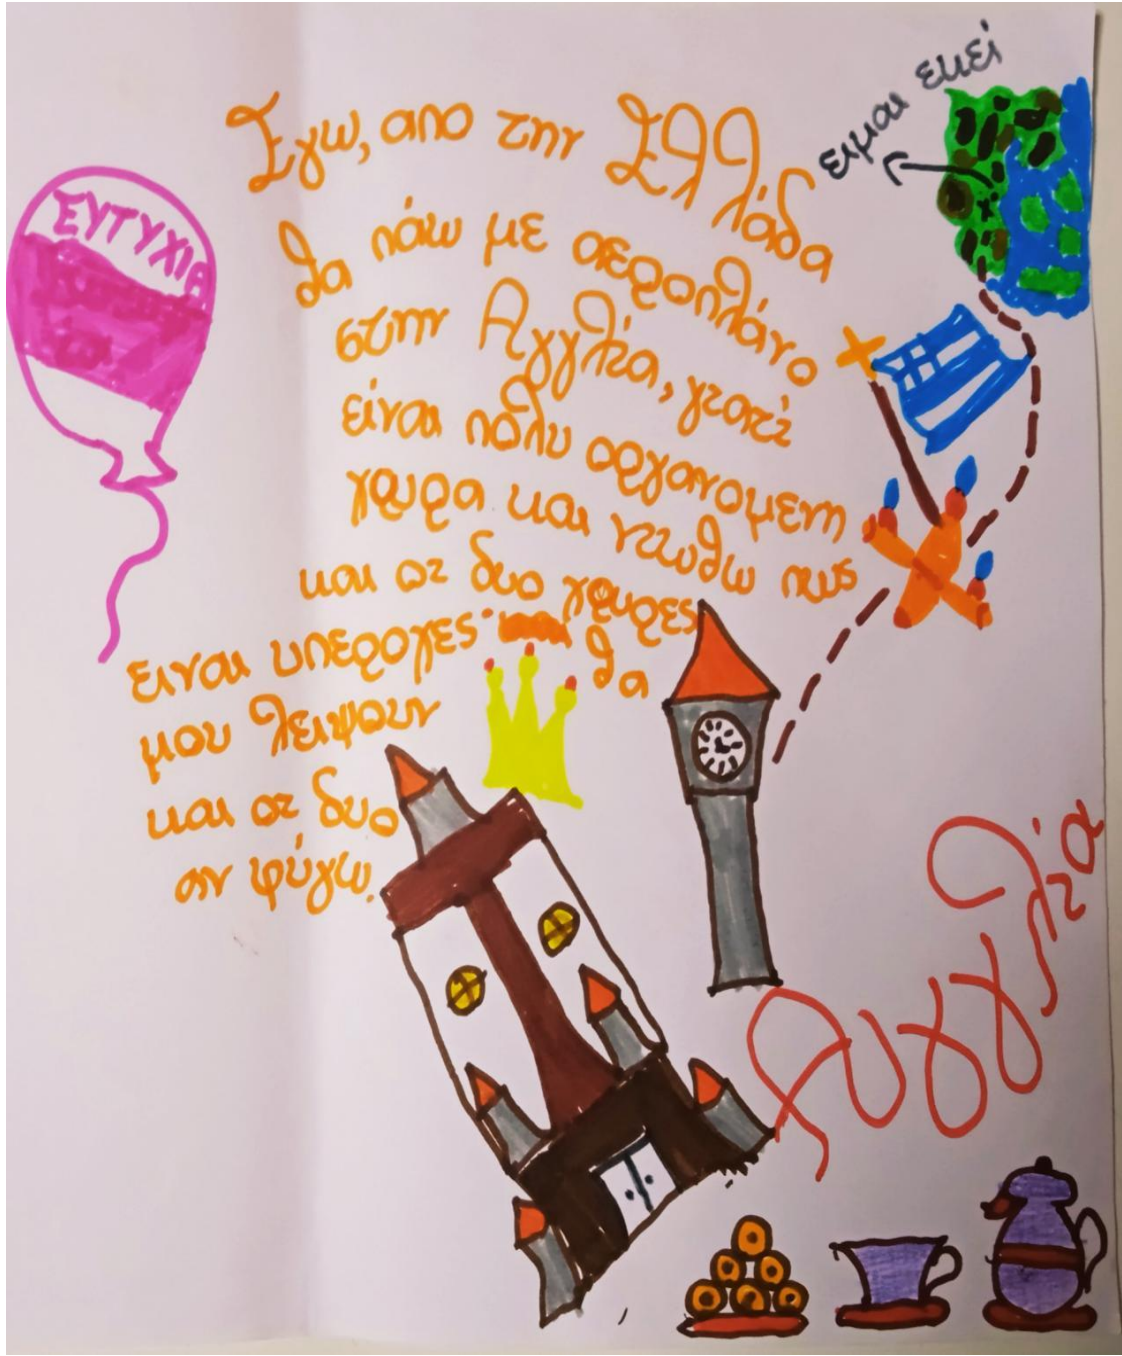 ειμαι εκεί
Εγω, απο την Ελλάδα
θα πάω με αεροπλάνο
στην Αγγλία, γιατί
είναι πολυ οργανομενη
χωρα και νιωθω πως
και οι δυο χωρες
ειναι υπεροχες· θα
μου λειψουν
και οι δυο
αν φύγω.
ΕΥΤΥΧΙΑ
Αγγλία